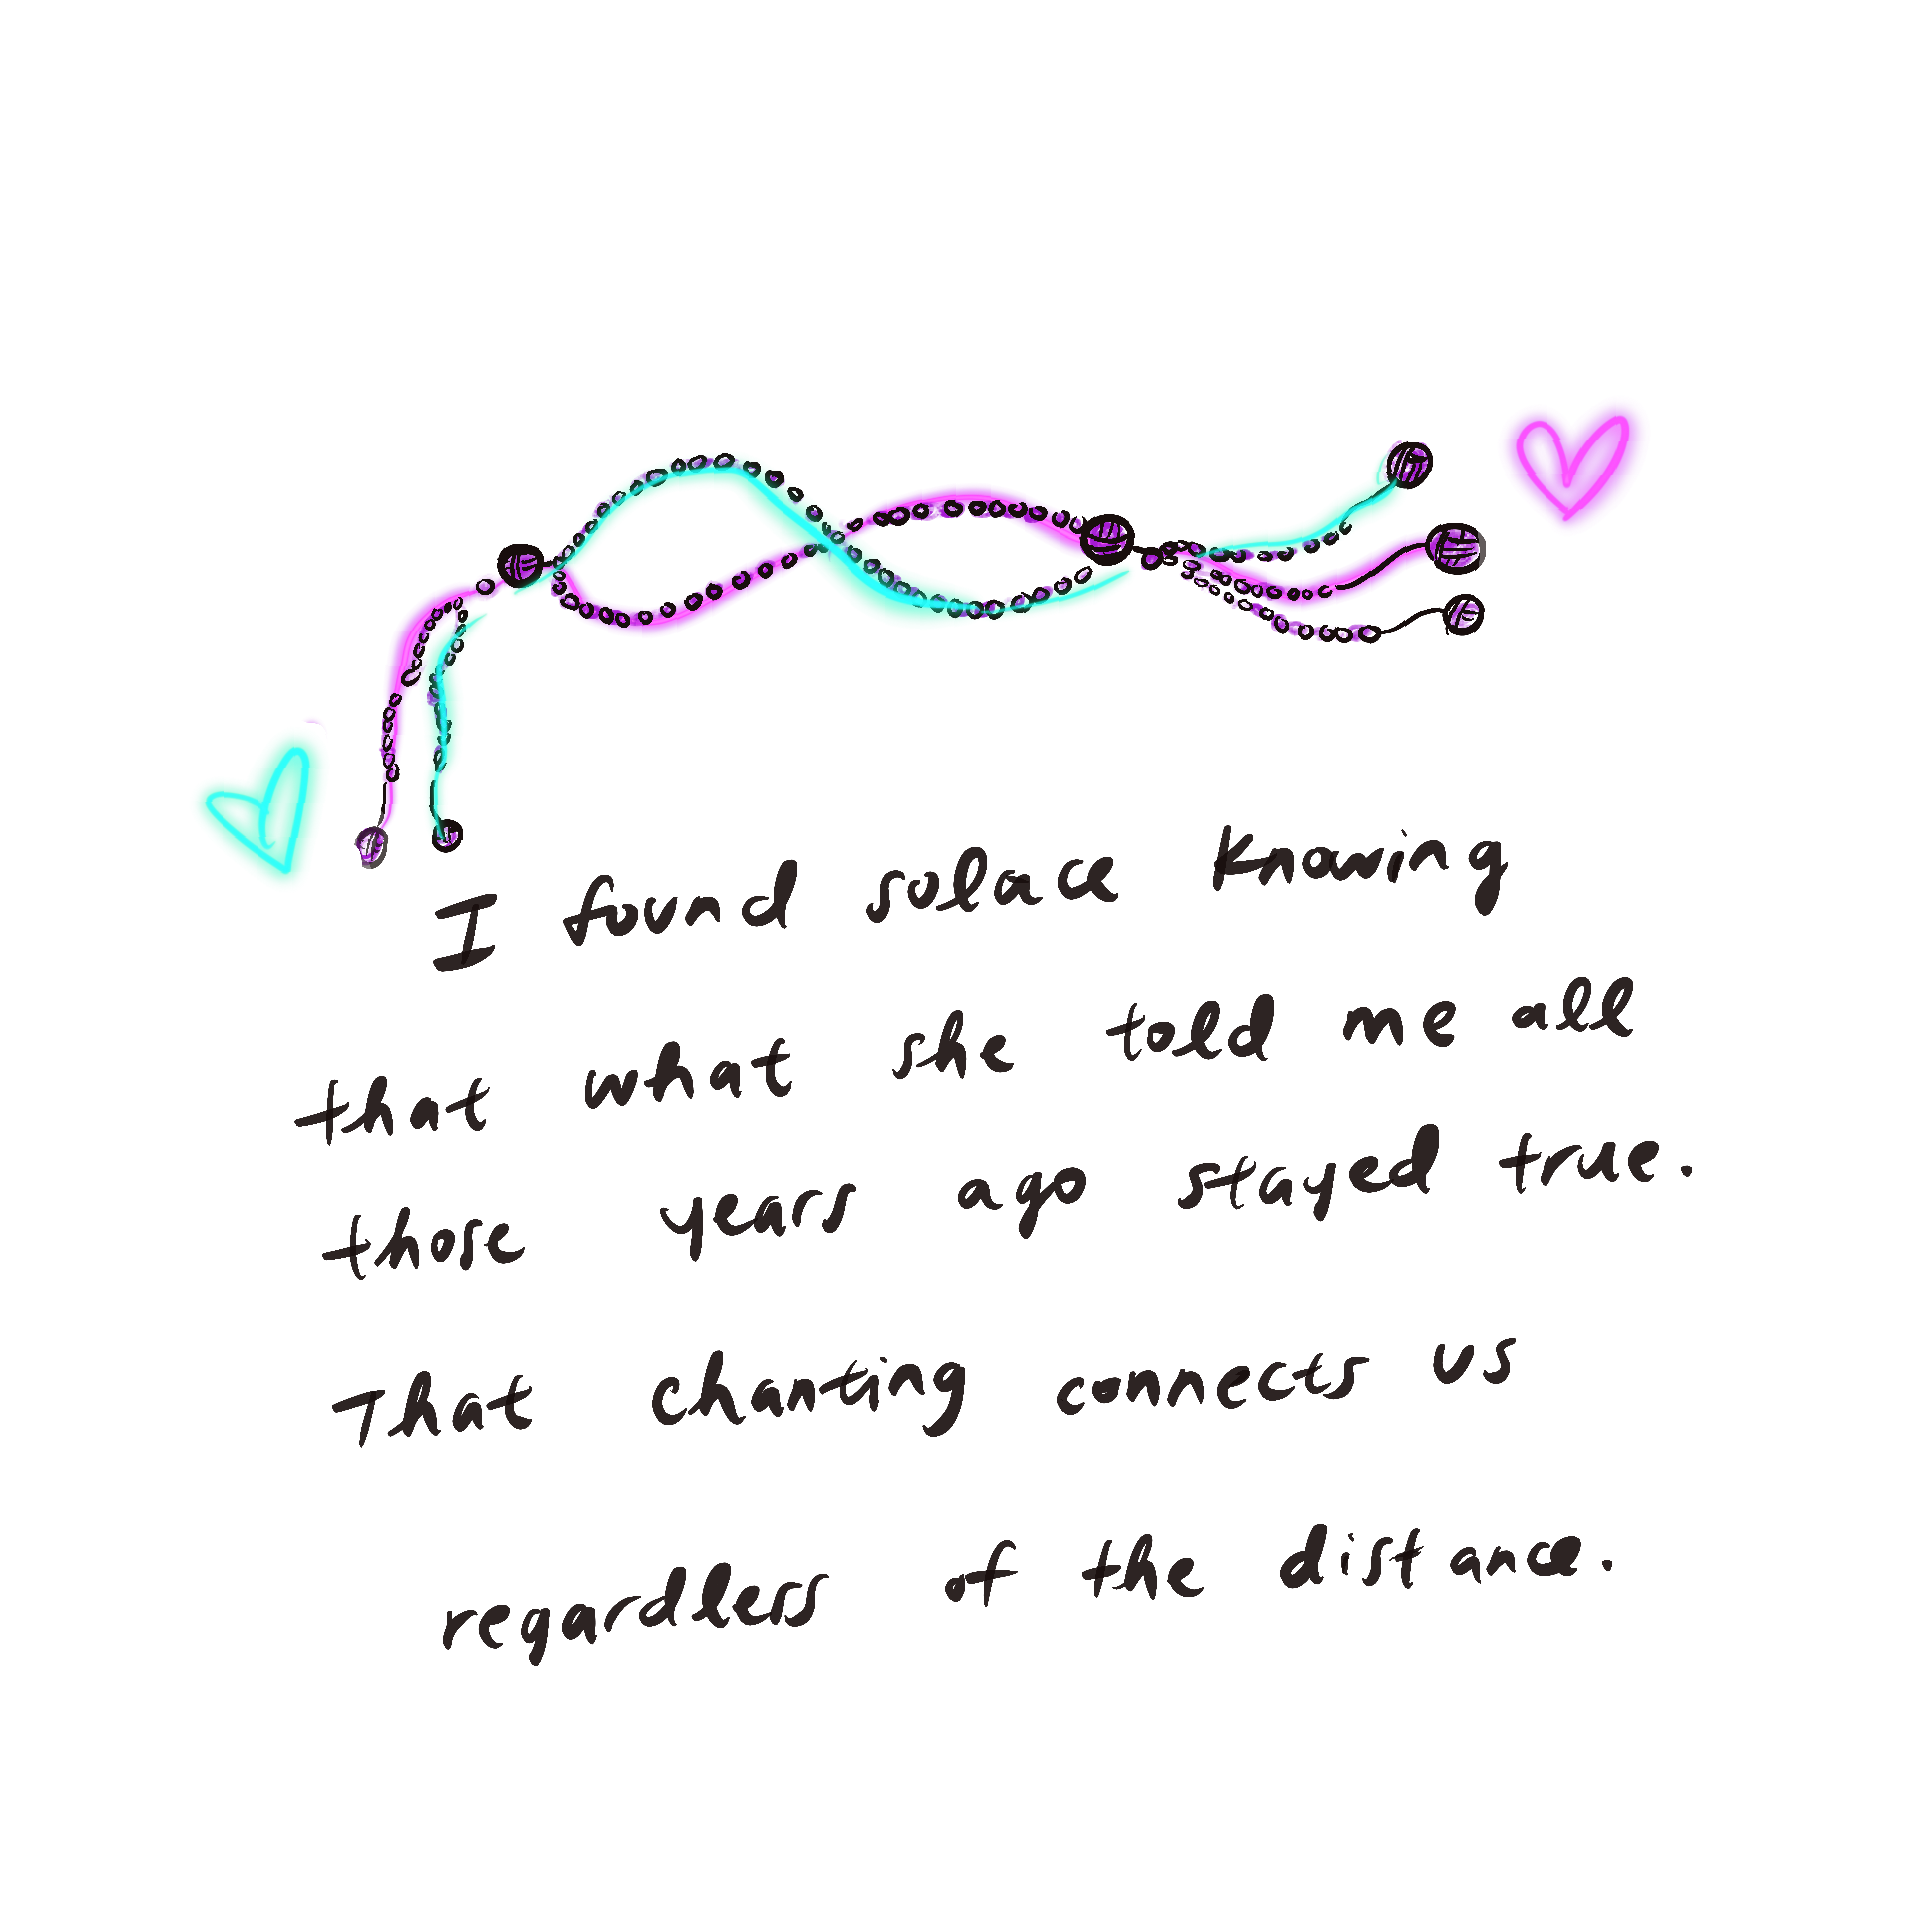 I found solace knowing
that what she told me all
those years ago stayed true.
That chanting connects us
regardless of the distance.